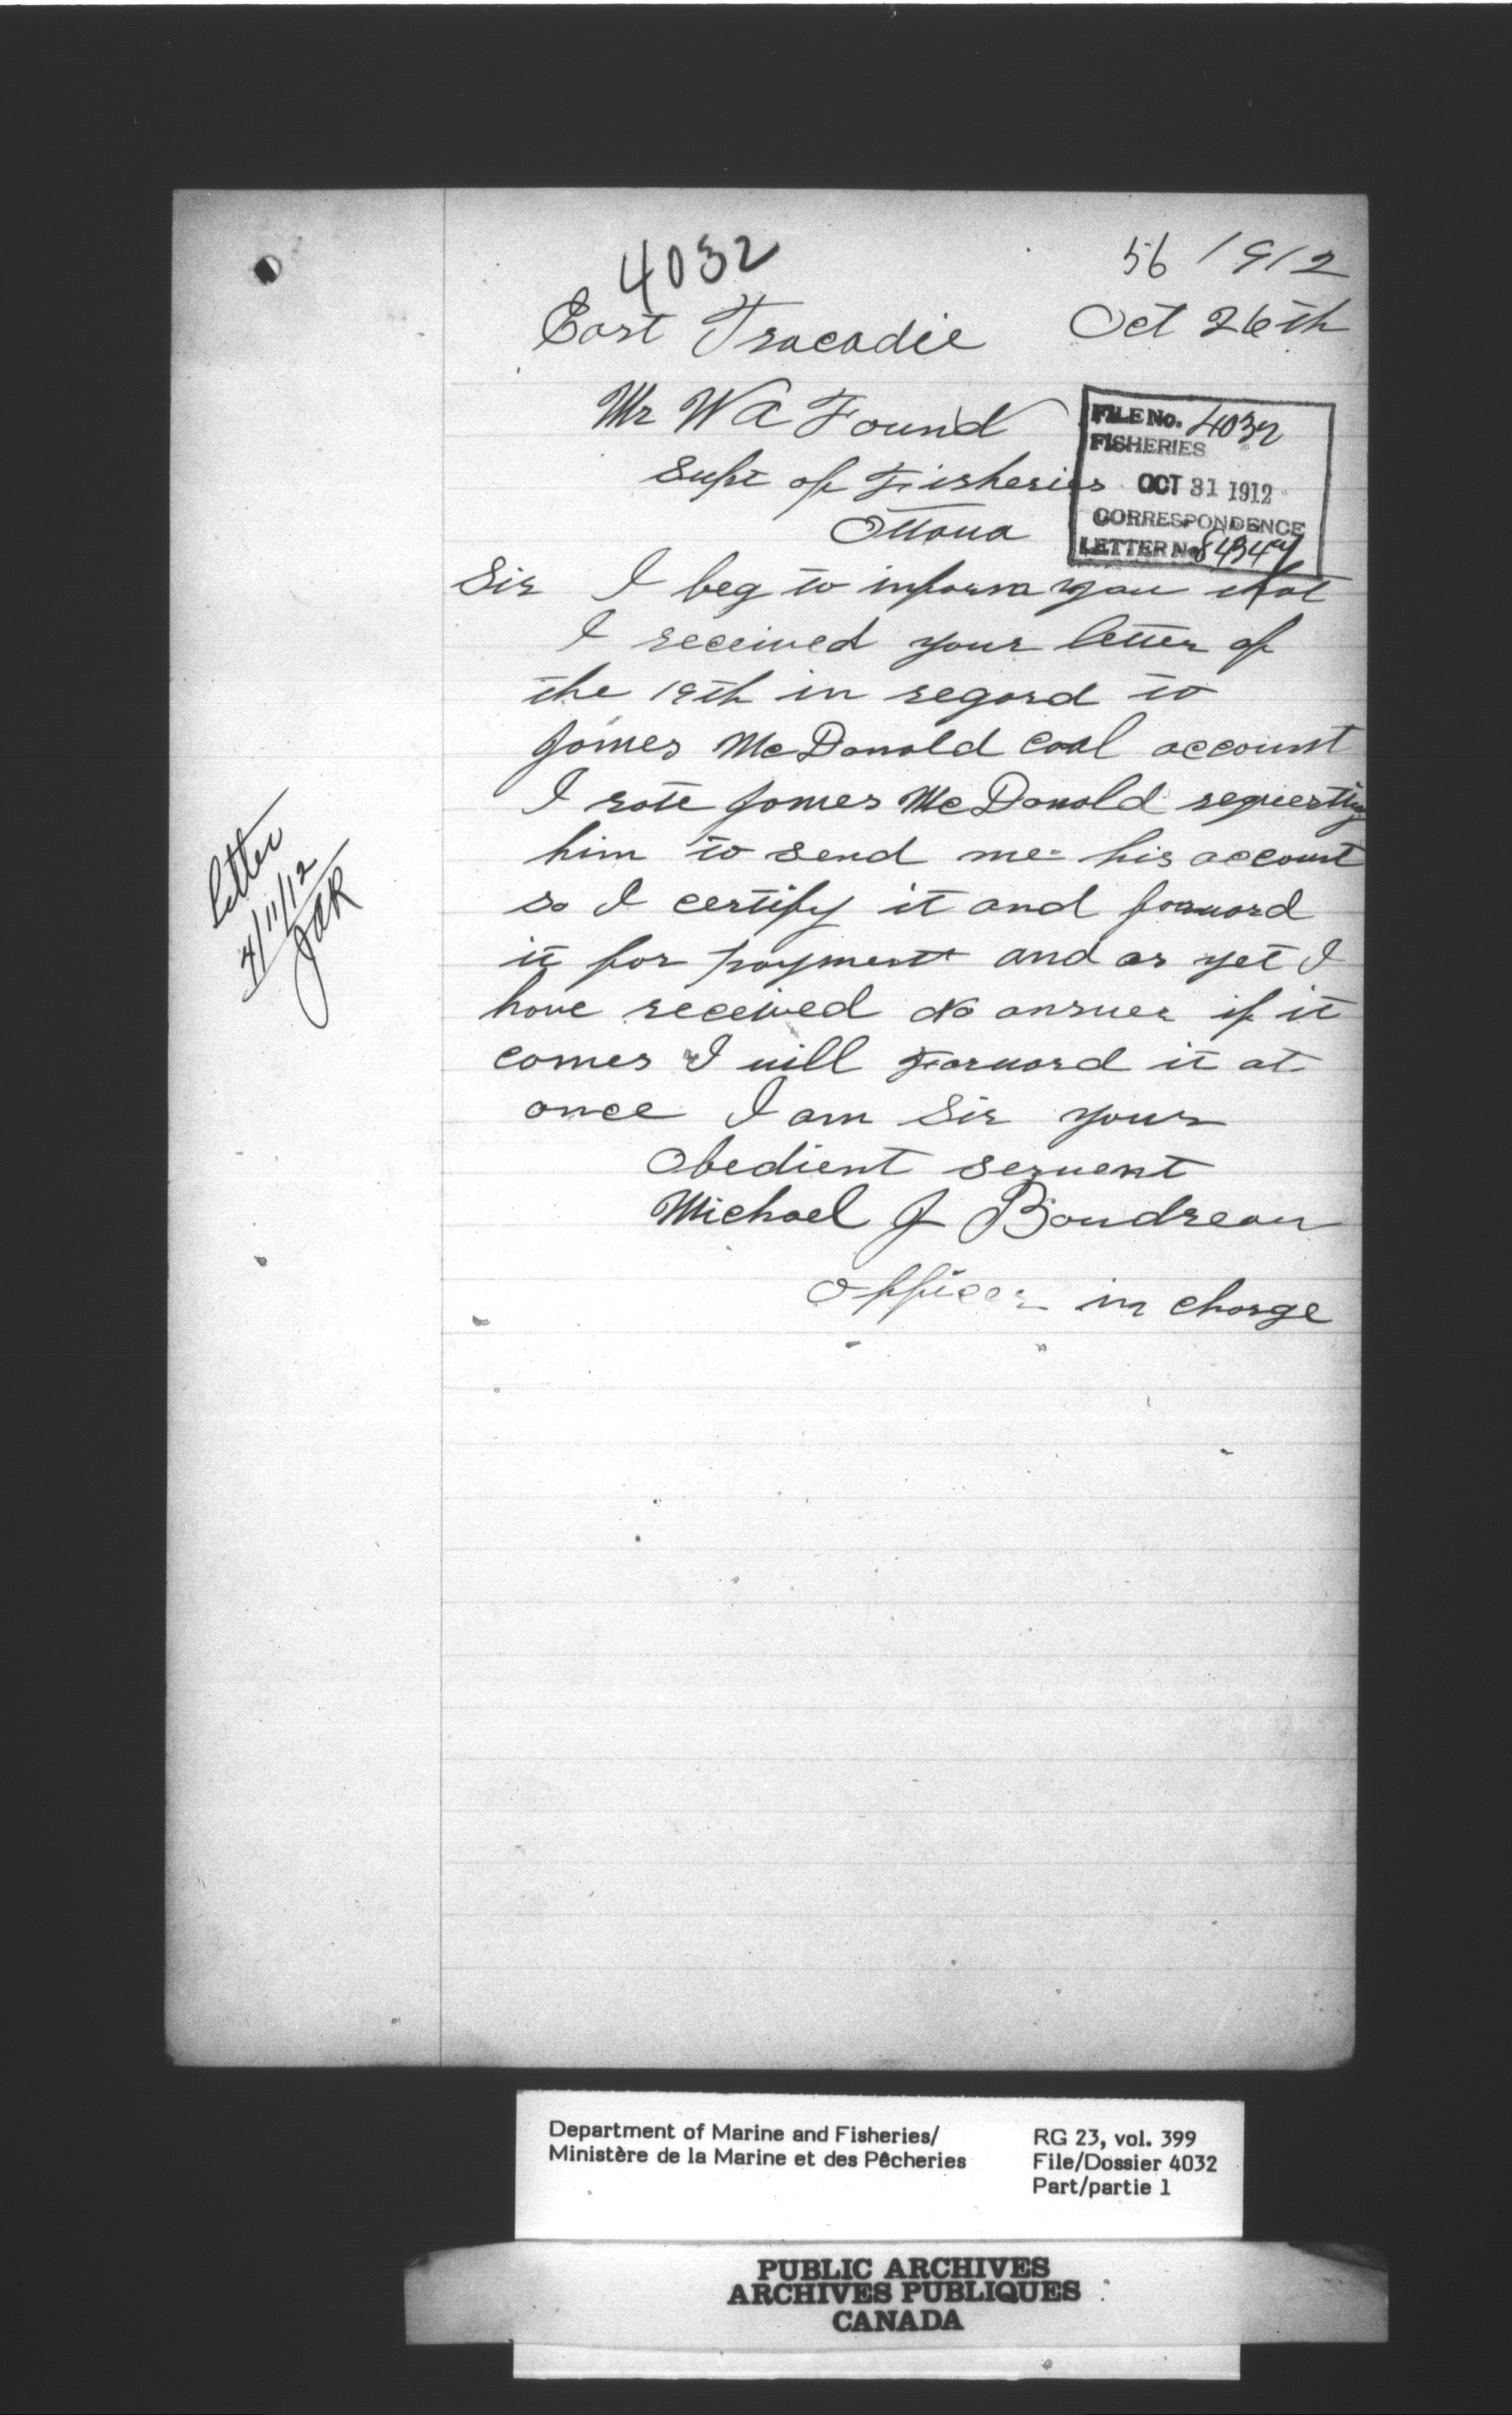 4032
56 1912
East Tracadie Oct 26th
Mr W A Found
Supt of Fisheries
Ottawa
FILE No. 4032
FISHERIES
OCT 31 1912
CORRESPONDENCE
LETTER No
Sir I beg to inform you that
I received your letter of
the 19th in regard to
James McDonald coal account
I rote James McDonald requesting
him to send me his account
so I certify it and forward
it for payment and as yet I
have received no answer if it
comes I will Forward it at
once I am Sir your
Obedient servent
Michael J Boudreau
Officer in charge
letter
4/11/12
Department of Marine and Fisheries/
Ministère de la Marine et des Pêcheries
RG 23, vol. 399
File/Dossier 4032
Part/partie 1
PUBLIC ARCHIVES
ARCHIVES PUBLIQUES
CANADA